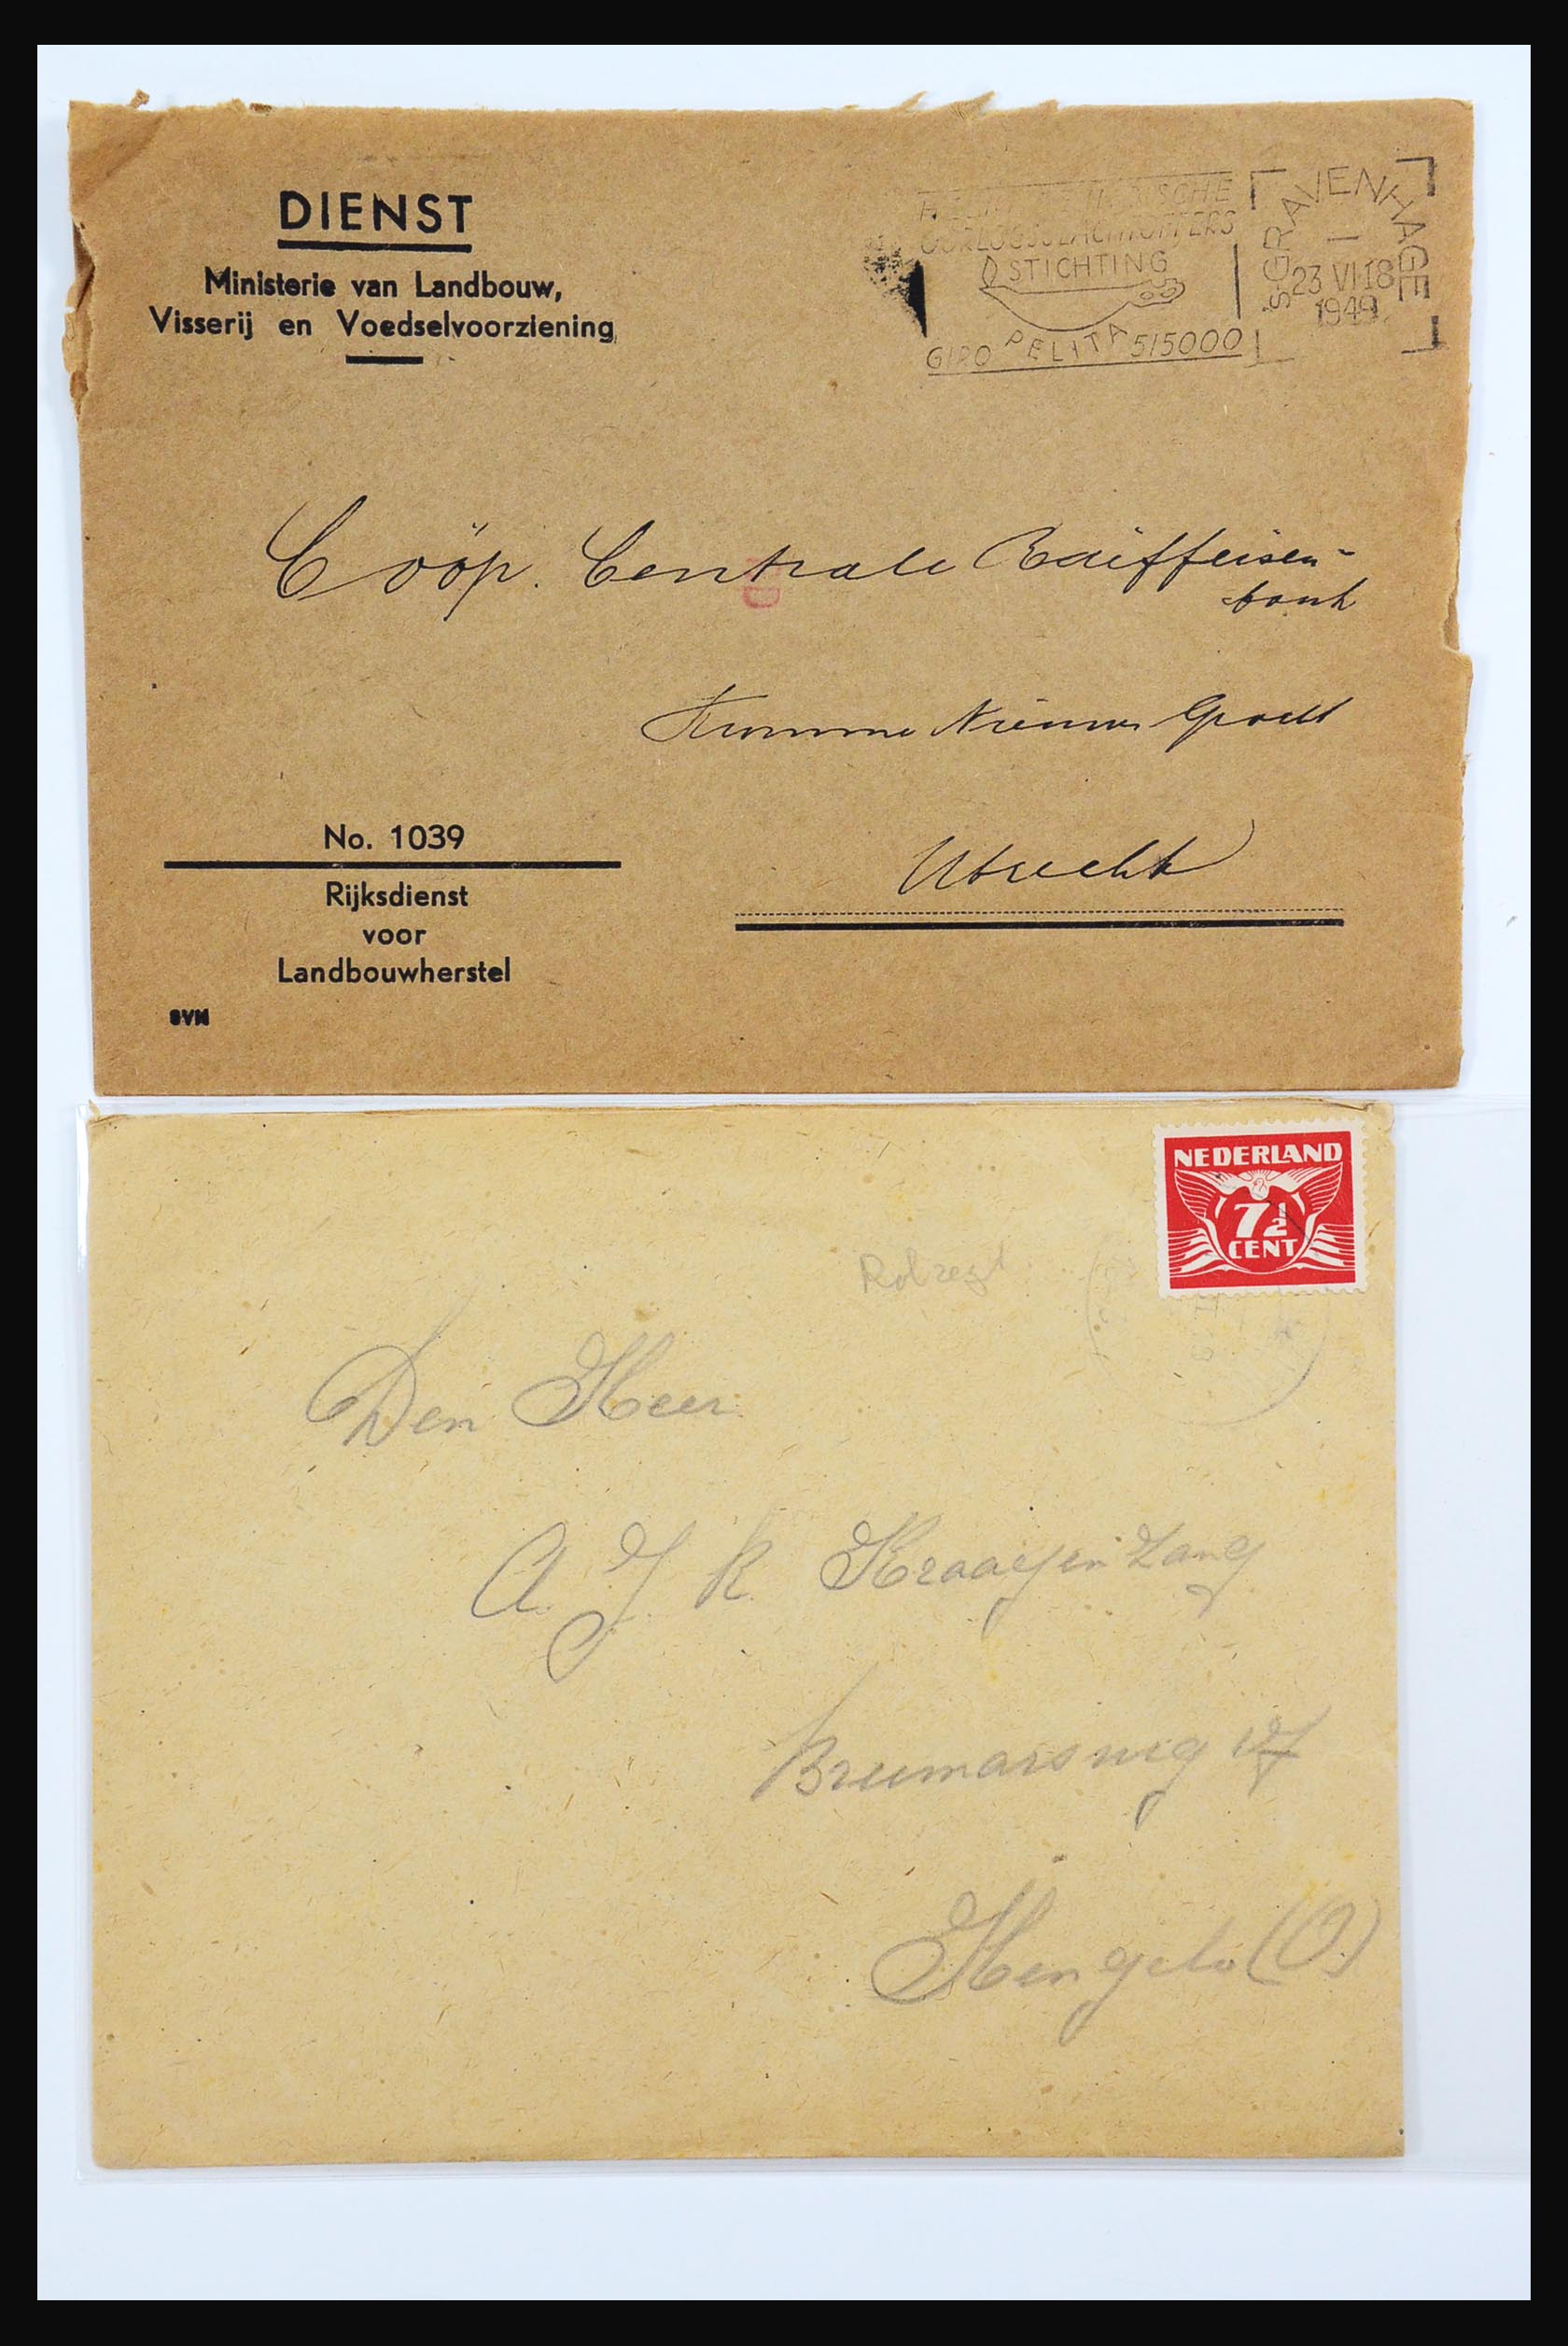 DIENST
Ministerie van Landbouw,
Visserij en Voedselvoorziening
OORLOGSSLACHTOFFERS
STICHTING
PELITA
GIRO 515000
'SGRAVENHAGE
23 VI 18
1949
Coöp. Centrale Raiffeisen-
bank
Kromme Nieuwe Gracht
Utrecht
No. 1039
Rijksdienst
voor
Landbouwherstel
SVM
NEDERLAND
7½
CENT
Den Heer
A J K Kraayenzang
Hengelo (O.)